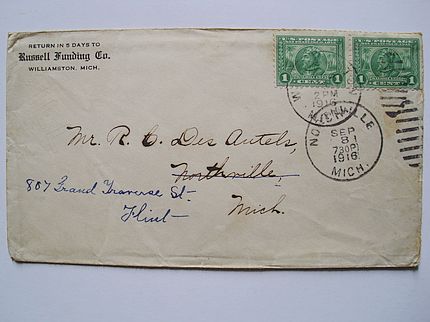 RETURN IN 5 DAYS TO
Russell Funding Co.
WILLIAMSTON, MICH.
U.S. POSTAGE
1 CENT 1
U.S. POSTAGE
1 CENT 1
2 PM
1916
MICH.
NORTHVILLE
SEP
8
730P
1916
MICH.
Mr. R. C. Des Autels,
Northville,
807 Grand Traverse St.
Flint
Mich.